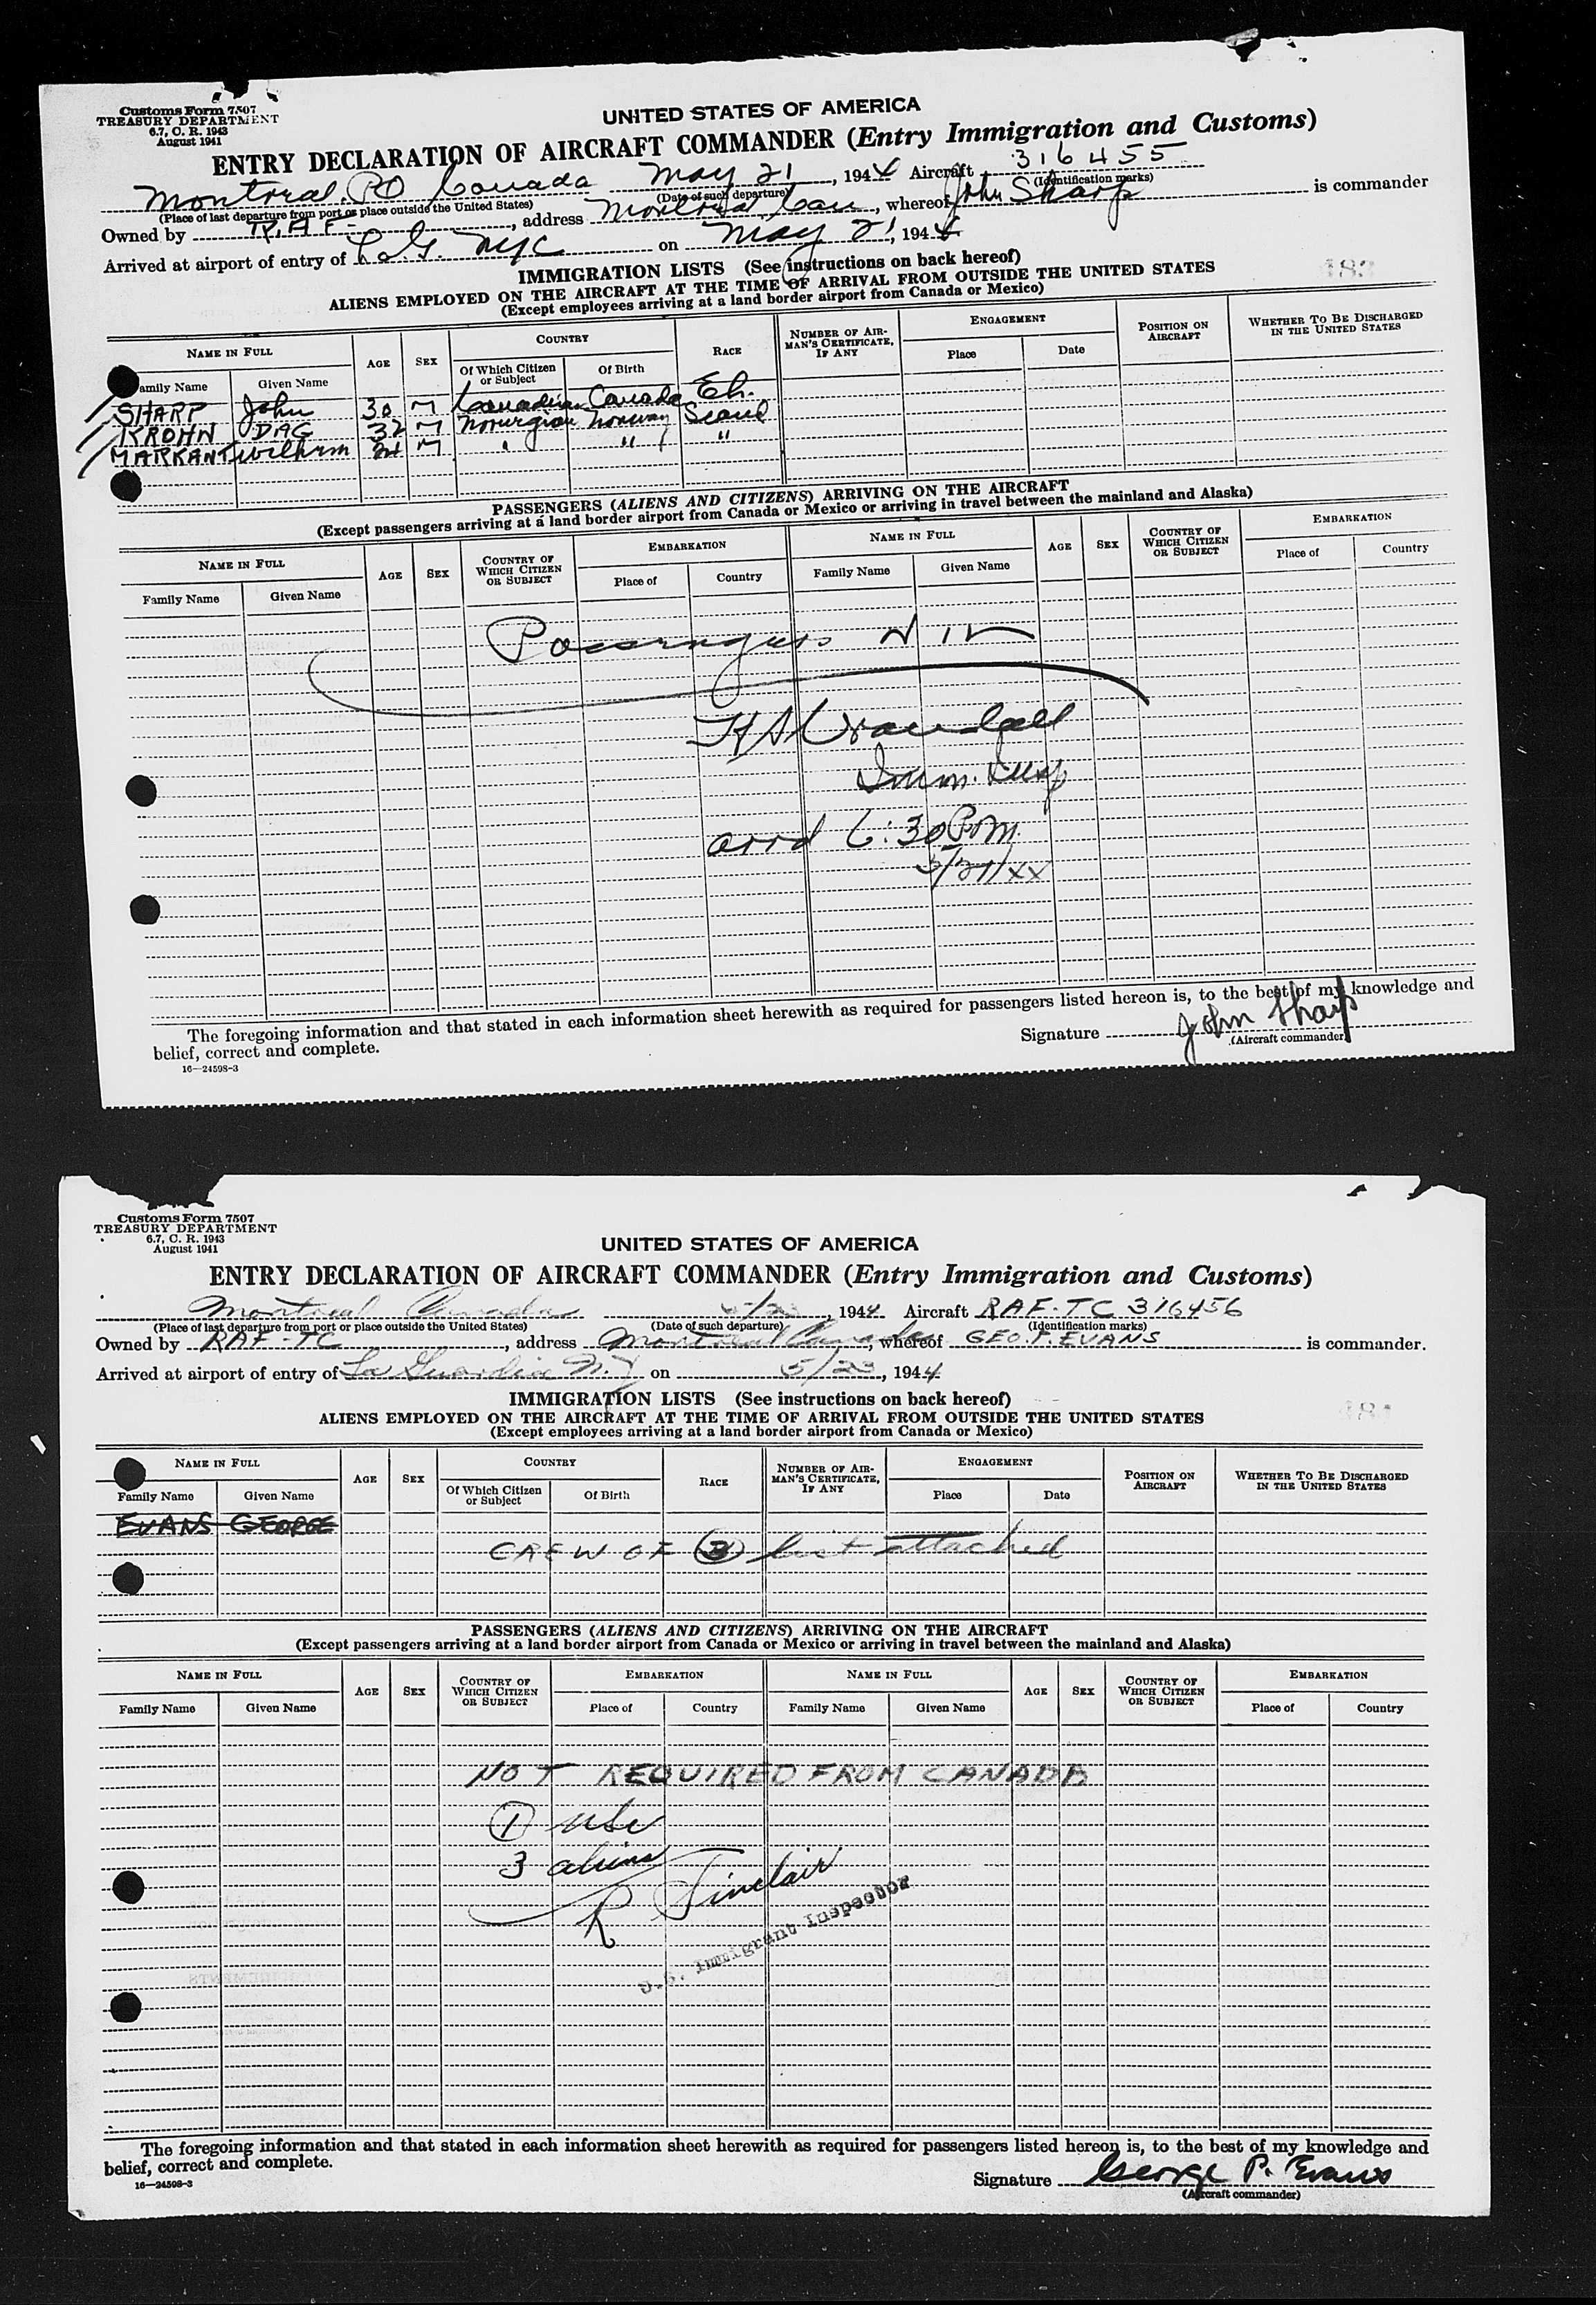 Customs Form 7507
TREASURY DEPARTMENT
6.7, C. R. 1943
August 1941
UNITED STATES OF AMERICA
ENTRY DECLARATION OF AIRCRAFT COMMANDER (Entry Immigration and Customs)
Montreal. PQ Canada May 21, 1944 Aircraft 316455
(Place of last departure from port or place outside the United States) (Date of such departure) (Identification marks)
Owned by R.A.F., address Montreal Can, whereof John Sharp is commander
Arrived at airport of entry of L.G. NYC on May 21, 1944
IMMIGRATION LISTS (See instructions on back hereof)
183
ALIENS EMPLOYED ON THE AIRCRAFT AT THE TIME OF ARRIVAL FROM OUTSIDE THE UNITED STATES
(Except employees arriving at a land border airport from Canada or Mexico)
NAME IN FULL AGE SEX COUNTRY RACE NUMBER OF AIRMAN'S CERTIFICATE, IF ANY ENGAGEMENT POSITION ON AIRCRAFT WHETHER TO BE DISCHARGED IN THE UNITED STATES
amily Name Given Name Of Which Citizen or Subject Of Birth Place Date
SHARP John 30 M Canadian Canada
KROHN DAG 32 M Norwegian Norway Scand
MARKANT M " " "
PASSENGERS (ALIENS AND CITIZENS) ARRIVING ON THE AIRCRAFT
(Except passengers arriving at a land border airport from Canada or Mexico or arriving in travel between the mainland and Alaska)
NAME IN FULL AGE SEX COUNTRY OF WHICH CITIZEN OR SUBJECT EMBARKATION NAME IN FULL AGE SEX COUNTRY OF WHICH CITIZEN OR SUBJECT EMBARKATION
Family Name Given Name Place of Country Family Name Given Name Place of Country
Passengers NIL
H A Crandall
Imm. Insp
arrd 6:30 P.M.
5/21/44
The foregoing information and that stated in each information sheet herewith as required for passengers listed hereon is, to the best of my knowledge and
belief, correct and complete.
Signature John Sharp
(Aircraft commander)
16—24598-3
Customs Form 7507
TREASURY DEPARTMENT
6.7, C. R. 1943
August 1941
UNITED STATES OF AMERICA
ENTRY DECLARATION OF AIRCRAFT COMMANDER (Entry Immigration and Customs)
Montreal Canada 5/23, 1944 Aircraft RAF-TC 316456
(Place of last departure from port or place outside the United States) (Date of such departure) (Identification marks)
Owned by RAF-TC, address Montreal Canada, whereof GEO. P. EVANS is commander.
Arrived at airport of entry of La Guardia N.Y on 5/23, 1944
IMMIGRATION LISTS (See instructions on back hereof)
ALIENS EMPLOYED ON THE AIRCRAFT AT THE TIME OF ARRIVAL FROM OUTSIDE THE UNITED STATES
(Except employees arriving at a land border airport from Canada or Mexico)
NAME IN FULL AGE SEX COUNTRY RACE NUMBER OF AIRMAN'S CERTIFICATE, IF ANY ENGAGEMENT POSITION ON AIRCRAFT WHETHER TO BE DISCHARGED IN THE UNITED STATES
Family Name Given Name Of Which Citizen or Subject Of Birth Place Date
EVANS GEORGE
CREW OF 3 list attached
PASSENGERS (ALIENS AND CITIZENS) ARRIVING ON THE AIRCRAFT
(Except passengers arriving at a land border airport from Canada or Mexico or arriving in travel between the mainland and Alaska)
NAME IN FULL AGE SEX COUNTRY OF WHICH CITIZEN OR SUBJECT EMBARKATION NAME IN FULL AGE SEX COUNTRY OF WHICH CITIZEN OR SUBJECT EMBARKATION
Family Name Given Name Place of Country Family Name Given Name Place of Country
NOT REQUIRED FROM CANADA
1 usc
3 aliens
R Sinclair
U.S. Immigrant Inspector
The foregoing information and that stated in each information sheet herewith as required for passengers listed hereon is, to the best of my knowledge and
belief, correct and complete.
Signature George P. Evans
(Aircraft commander)
16—24598-3